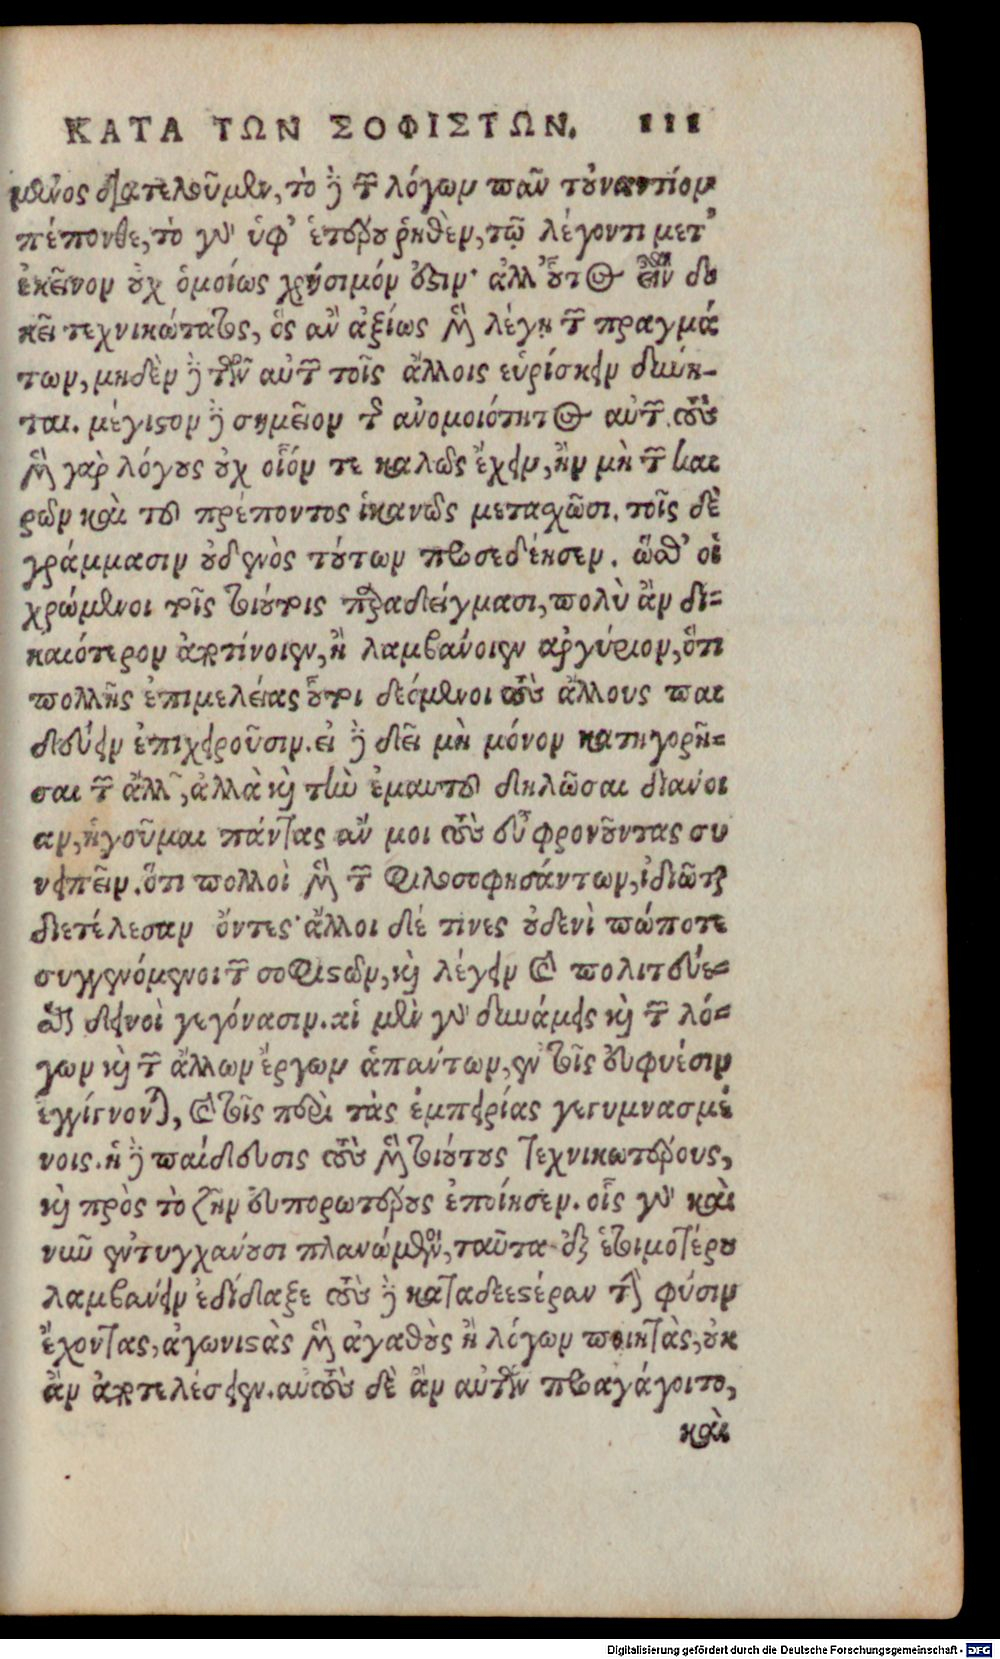 ΚΑΤΑ ΤΩΝ ΣΟΦΙΣΤΩΝ. 111
μενος διατελοῦμεν, τὸ δὲ τῶν λόγων πᾶν τοὐναντίον
πέπονθε, τὸ γὰρ ὑφ' ἑτέρου ῥηθὲν, τῷ λέγοντι μετ'
ἐκεῖνον οὐχ ὁμοίως χρήσιμόν ἐστιν· ἀλλ' οὗτος εἶναι δο
κεῖ τεχνικώτατος, ὃς ἂν ἀξίως μὲν λέγῃ τῶν πραγμά
των, μηδὲν δὲ τῶν αὐτῶν τοῖς ἄλλοις εὑρίσκειν δύνη-
ται. μέγιστον δὲ σημεῖον τῆς ἀνομοιότητος αὐτῶν. τοὺς
μὲν γὰρ λόγους οὐχ οἷόν τε καλῶς ἔχειν, ἢν μὴ τῶν και
ρῶν καὶ τοῦ πρέποντος ἱκανῶς μετασχῶσι. τοῖς δὲ
γράμμασιν οὐδενὸς τούτων προσεδέησεν. ὥσθ' οἱ
χρώμενοι τοῖς τοιούτοις παραδείγμασι, πολὺ ἂν δι-
καιότερον ἀποτίνοιεν, ἢ λαμβάνοιεν ἀργύριον, ὅτι
πολλῆς ἐπιμελείας οὗτοι δεόμενοι τοὺς ἄλλους παι
δεύειν ἐπιχειροῦσιν. εἰ δὲ δεῖ μὴ μόνον κατηγορῆ-
σαι τῶν ἄλλων, ἀλλὰ καὶ τὴν ἐμαυτοῦ δηλῶσαι διάνοι
αν, ἡγοῦμαι πάντας ἄν μοι τοὺς εὖ φρονοῦντας συ
νειπεῖν. ὅτι πολλοὶ μὲν τῶν φιλοσοφησάντων, ἰδιῶται
διετέλεσαν ὄντες· ἄλλοι δέ τινες οὐδενὶ πώποτε
συγγενόμενοι τῶν σοφιστῶν, καὶ λέγειν καὶ πολιτεύε-
σθαι δεινοὶ γεγόνασιν. αἱ μὲν γὰρ δυνάμεις καὶ τῶν λό-
γων καὶ τῶν ἄλλων ἔργων ἁπάντων, ἐν τοῖς εὐφυέσιν
ἐγγίγνονται, καὶ τοῖς περὶ τὰς ἐμπειρίας γεγυμνασμέ
νοις. ἡ δὲ παίδευσις τοὺς μὲν τοιούτους τεχνικωτέρους,
καὶ πρὸς τὸ ζῆν εὐπορωτέρους ἐποίησεν. οἷς γὰρ καὶ
νῦν ἐντυγχάνουσι πλανώμενοι, ταῦτα ἐξ ἑτοιμοτέρου
λαμβάνειν ἐδίδαξε τοὺς δὲ καταδεεστέραν τὴν φύσιν
ἔχοντας, ἀγωνιστὰς μὲν ἀγαθοὺς ἢ λόγων ποιητὰς, οὐκ
ἂν ἀποτελέσειεν. αὐτοὺς δὲ ἂν αὐτῶν προαγάγοιτο,
καὶ
Digitalisierung gefördert durch die Deutsche Forschungsgemeinschaft - DFG